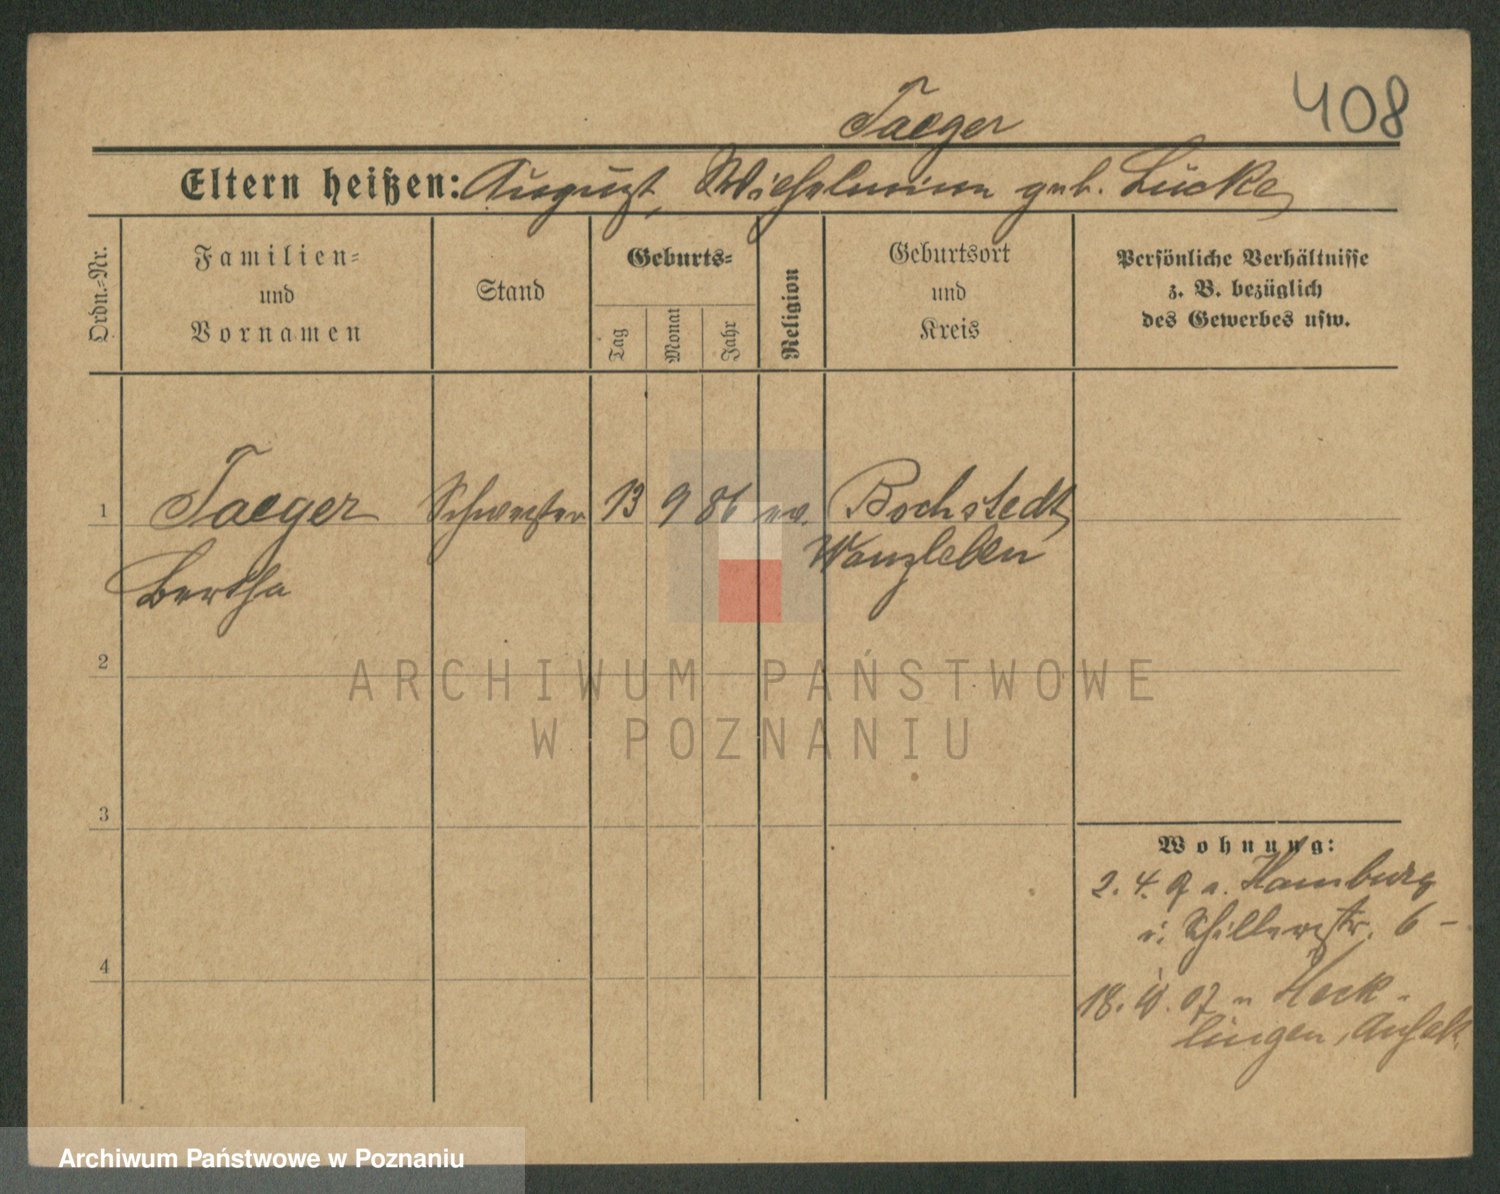 408
Taeger
Eltern heißen: August, Wilhelmine geb. Lücke
Ordn.-Nr.
Familien-
und
Vornamen
Stand
Geburts-
Tag
Monat
Jahr
Religion
Geburtsort
und
Kreis
Persönliche Verhältnisse
z. B. bezüglich
des Gewerbes usw.
1
Taeger Schwester 13 9 86 ev. Bochstedt
Wanzleben
Bertha
2
ARCHIWUM PAŃSTWOWE
W POZNANIU
3
Wohnung:
2. 4. a. Hamburg
Schillerstr. 6 -
4
18. 07 n Heck-
lingen, Anhalt
Archiwum Państwowe w Poznaniu